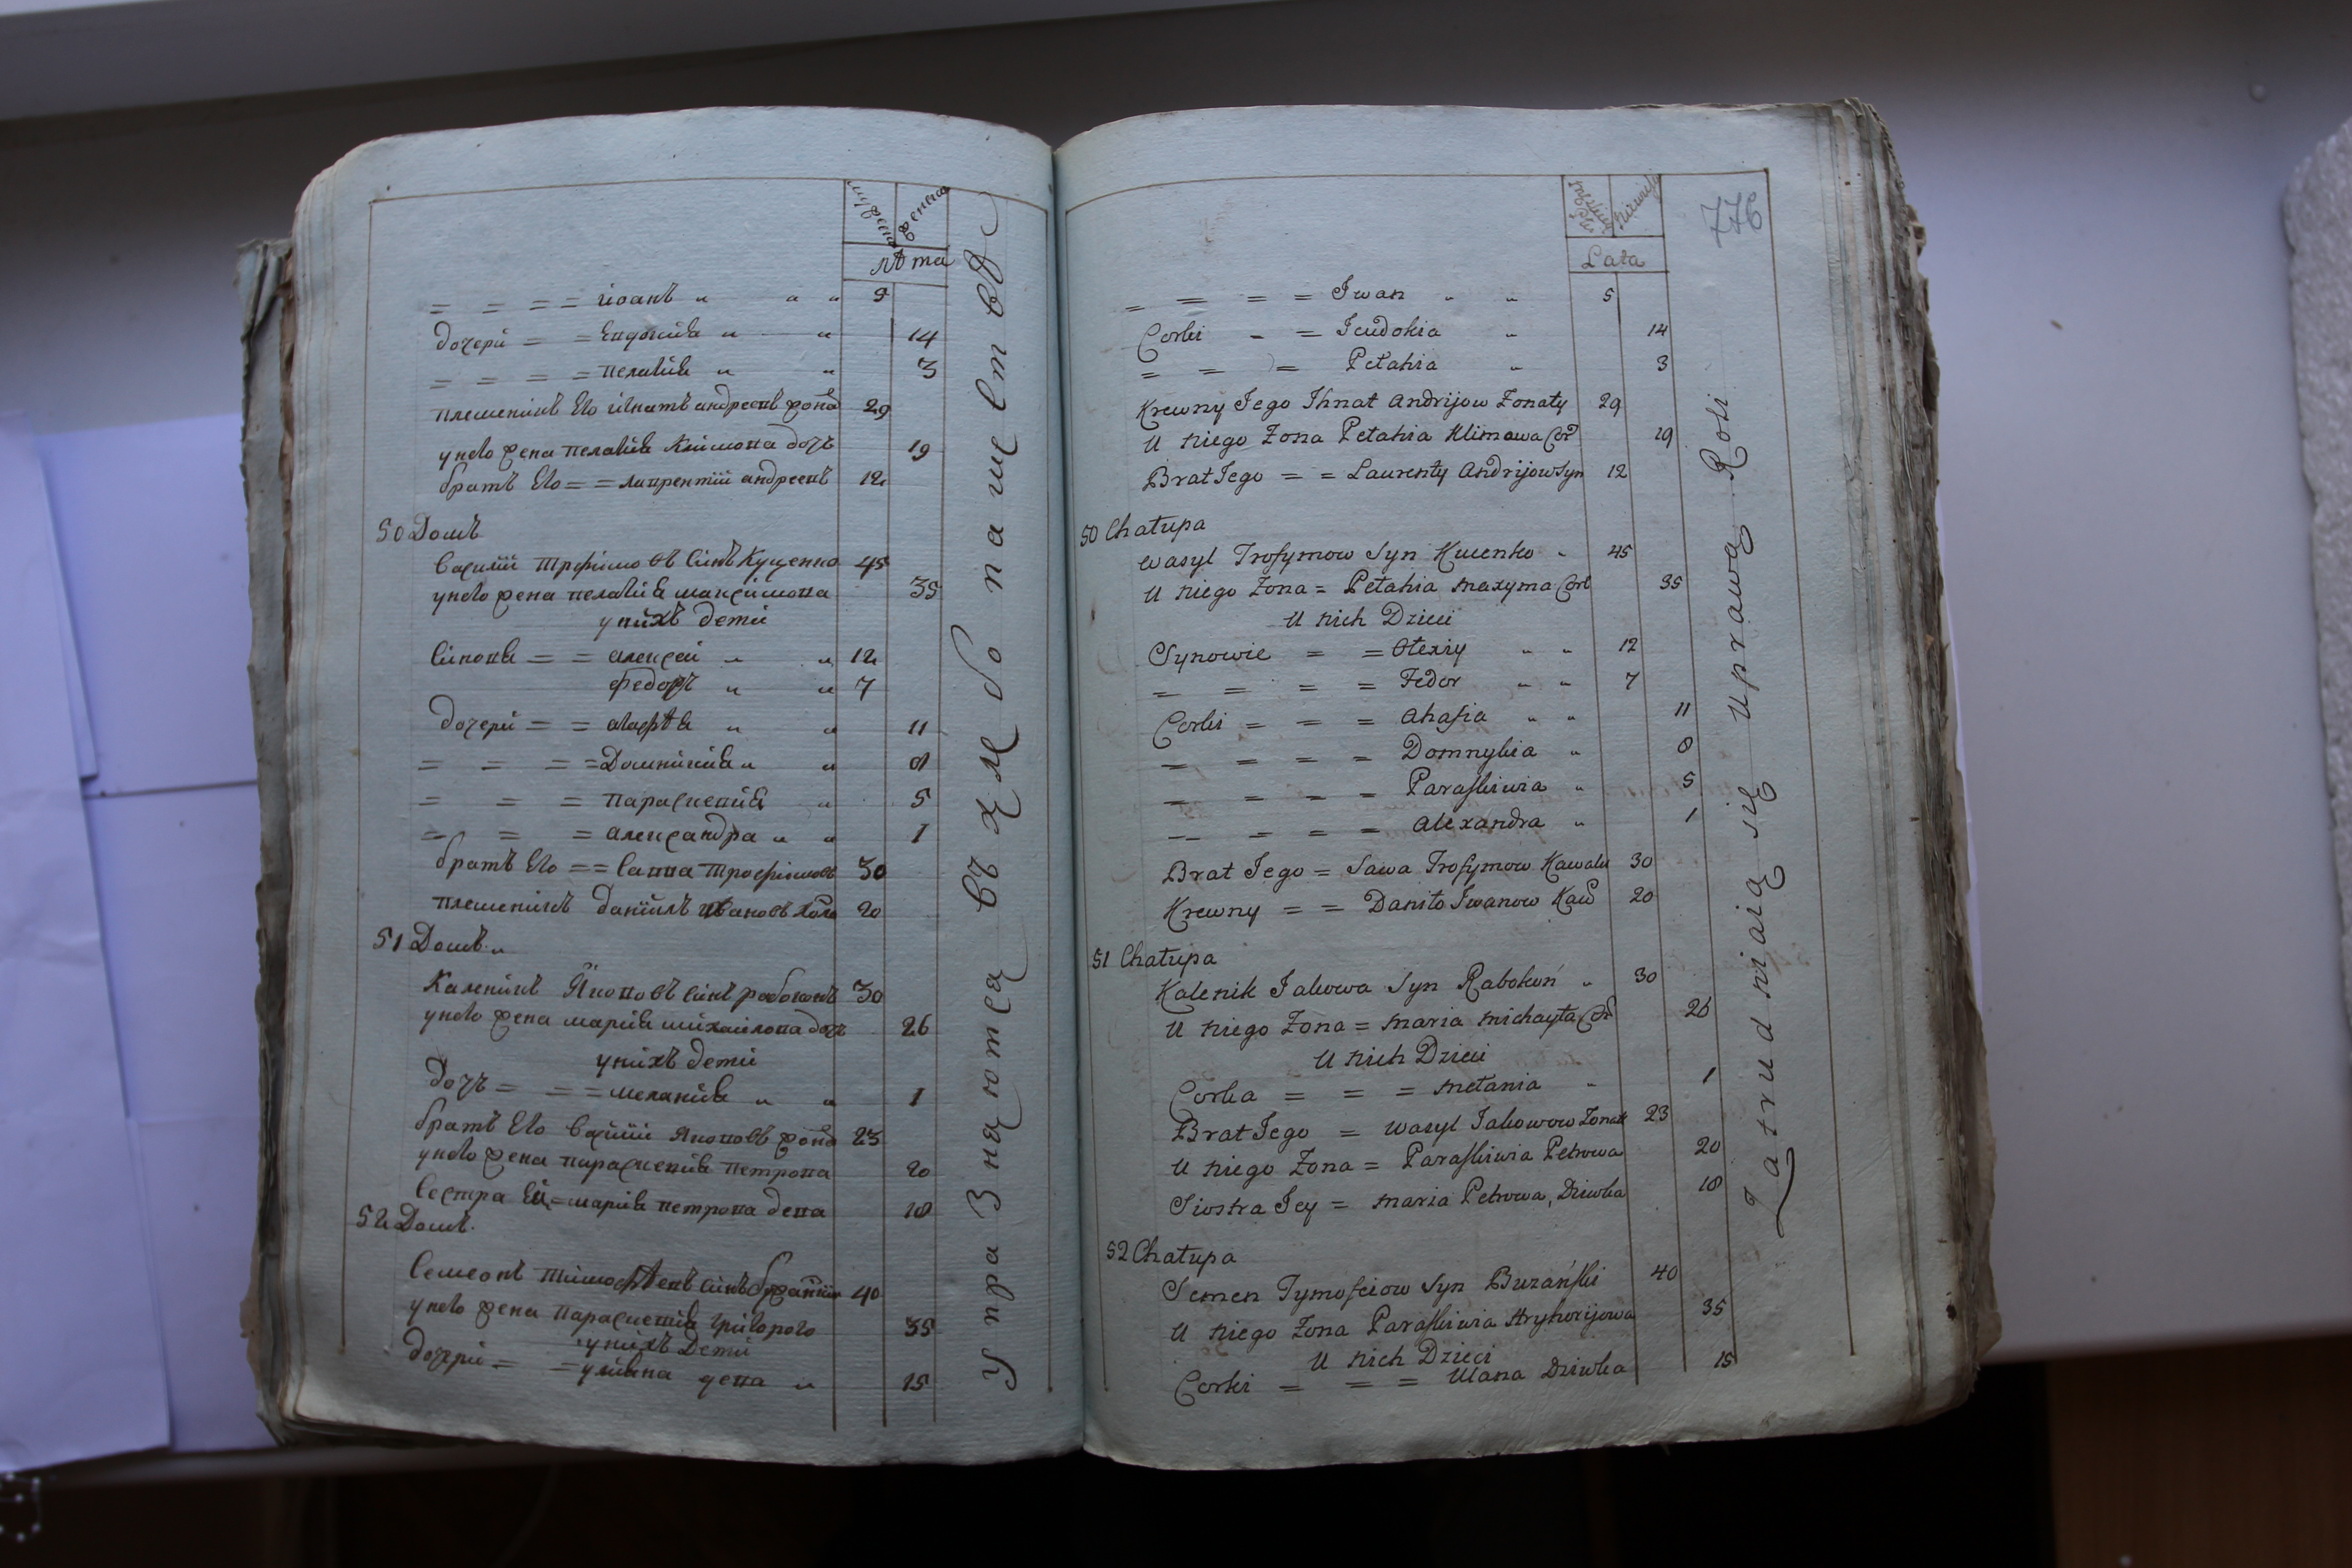 мужеска
женска
лѣта
= = = = іоанъ " " " 9
дочери = = Евдокія " " 14
= = = = пелагія " " 3
племеникъ Его игнатъ андреевъ жона 29
унего жена пелагія Климова дочь 19
братъ Его = = лаврентій андреевъ 12
50 Домъ
василій трофимовъ синъ Куценко 45
унего жена пелагія максимова 35
унихъ дети
синовя = = алексей " " 12
федоръ " " 7
дочери = = агафія " " 11
= = = = Домникия " " 8
= = = параскевия " 5
= = = александра " " 1
братъ Его = = савва трофимовъ 30
племеникъ даніилъ ивановъ холо 20
51 Домъ "
Каленикъ Яковъ синъ рабоконь 30
унего жена марія михайлова дочь 26
унихъ дети
дочь = = = меланія " " 1
братъ Его василій Яковъ жона 23
унего жена параскевия петрова 20
сестра Ей = марія петрова девка 18
52 Домъ.
Семеонъ тимофеевъ синъ бужанскій 40
унего жена параскевия григорого 35
унихъ дети
дочери = = улияна дева " 15
упражняются въ хлѣбопашествѣ
776
Lata
= = = = Jwan " " 5
Corki = = Jeudokia " 14
= = = Pełahia " 3
Krewny Jego Jhnat Andrijow Żonaty 29
U niego Żona Pełahia Klimowa Cor 19
Brat Jego = = Laurenty Andrijow Syn 12
50 Chałupa
Wasyl Trofymow Syn Kucenko " 45
U niego Żona = Pełahia Maxyma Cor 35
U nich Dzieci
Synowie = = Ołexiy " " 12
= = = = Fedor " " 7
Corki = = = Ahafia " " 11
= = = = Domnykia " 8
= = = = Paraskiwia " 5
= = = = Alexandra " 1
Brat Jego = Sawa Trofymow Kawaler 30
Krewny = = Daniło Jwanow Kaw 20
51 Chałupa
Kalenik Jakowa Syn Rabokoń " 30
U niego Żona = Maria Michayła Cor 26
U nich Dzieci
Corka = = = Mełania " 1
Brat Jego = Wasyl Jakowow Żonat 23
U niego Żona = Paraskiwia Petrowa 20
Siostra Jey = Maria Petrowa, Dziwka 18
52 Chałupa
Semen Tymofeiow Syn Buzański 40
U niego Żona Paraskiwia Hryhorijowa 35
U nich Dzieci
Corki = = = Ulana Dziwka 15
Zatrudniaią się Uprawą Roli